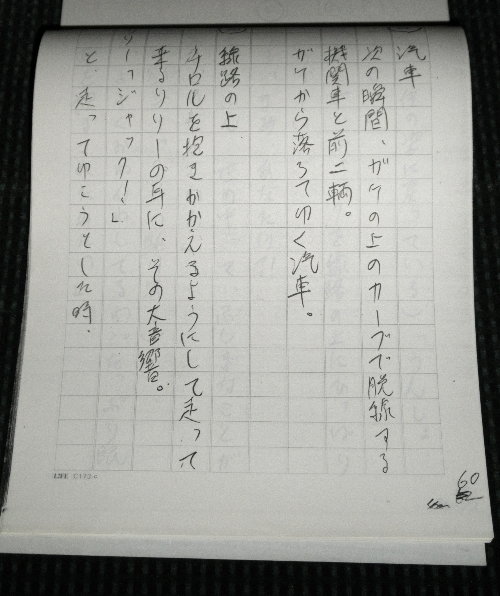 汽車
次の瞬間、ガケの上のカーブで脱線する
機関車と前二輌。
ガケから落ちてゆく汽車。
線路の上
キロルを抱きかかえるようにして走って
来るリリーの耳に、その大音響。
リ「ジャック！」
と、走ってゆこうとした時、
60
LIFE C172c